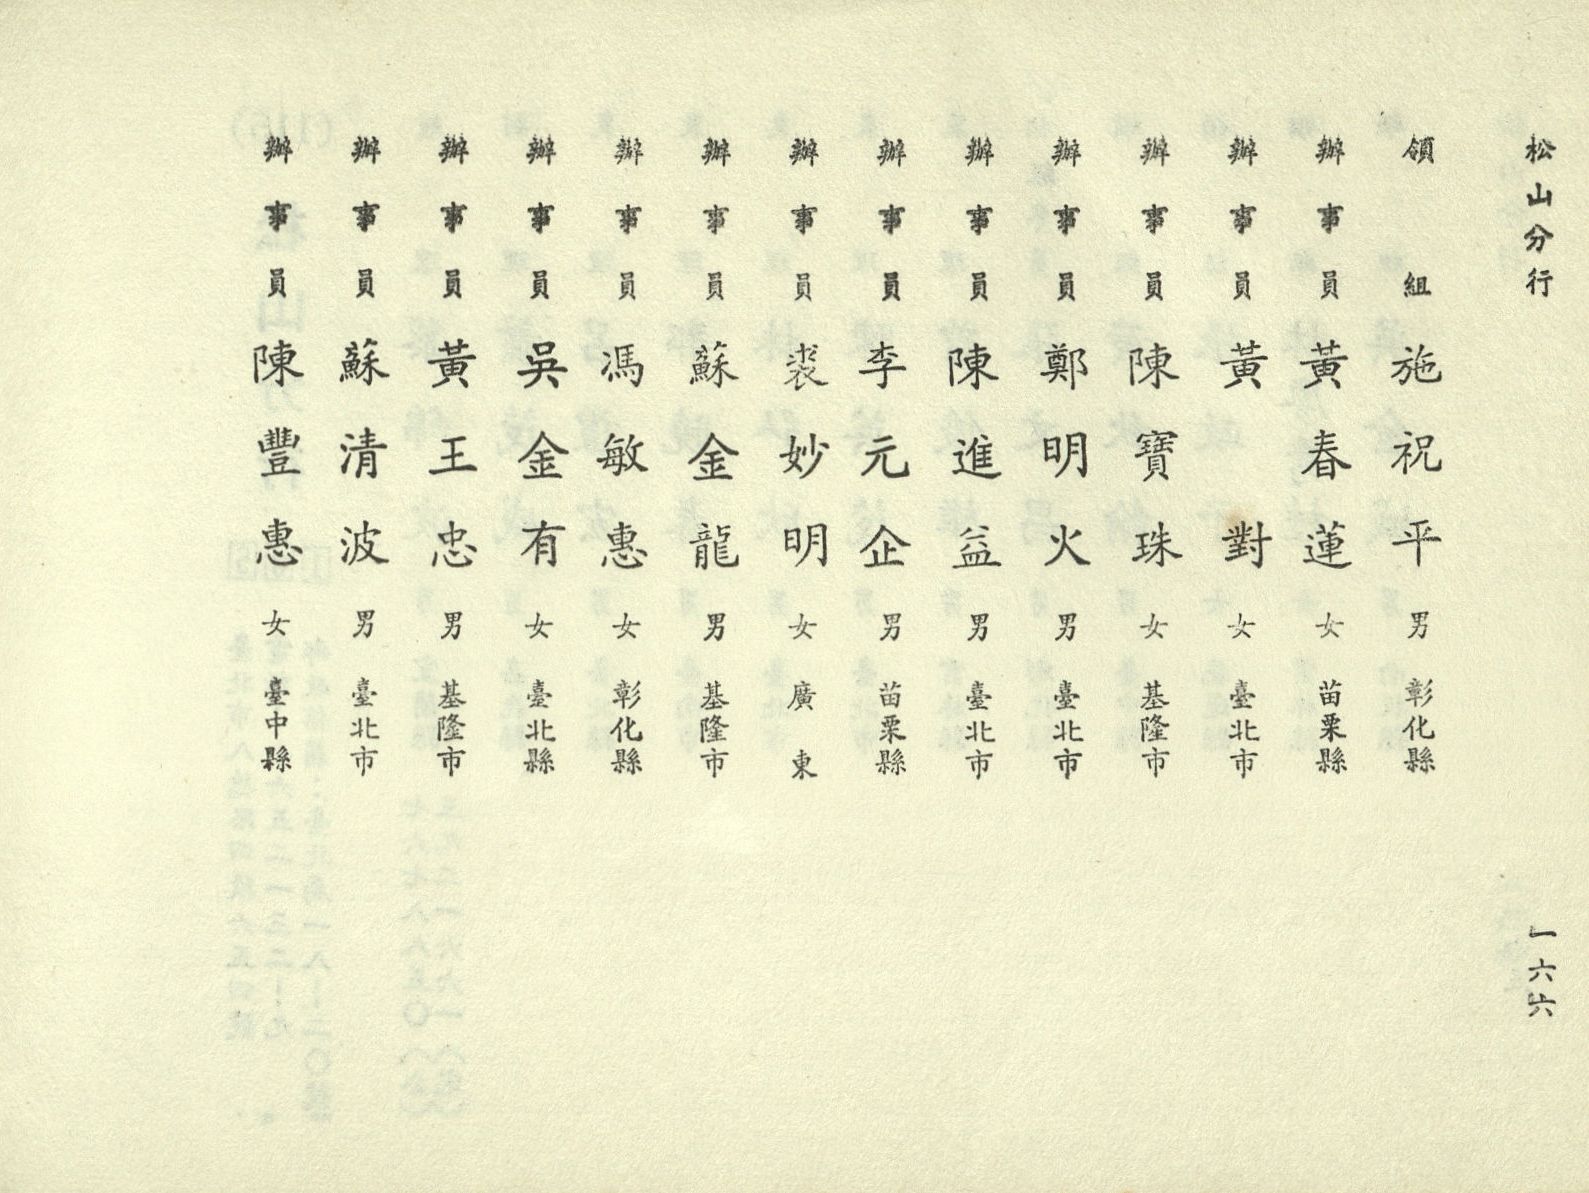 松山分行
一六六
領組 施祝平 男 彰化縣
辦事員 黃春蓮 女 苗栗縣
辦事員 黃對 女 臺北市
辦事員 陳寶珠 女 基隆市
辦事員 鄭明火 男 臺北市
辦事員 陳進益 男 臺北市
辦事員 李元企 男 苗栗縣
辦事員 裘妙明 女 廣東
辦事員 蘇金龍 男 基隆市
辦事員 馮敏惠 女 彰化縣
辦事員 吳金有 女 臺北縣
辦事員 黃王忠 男 基隆市
辦事員 蘇清波 男 臺北市
辦事員 陳豐惠 女 臺中縣